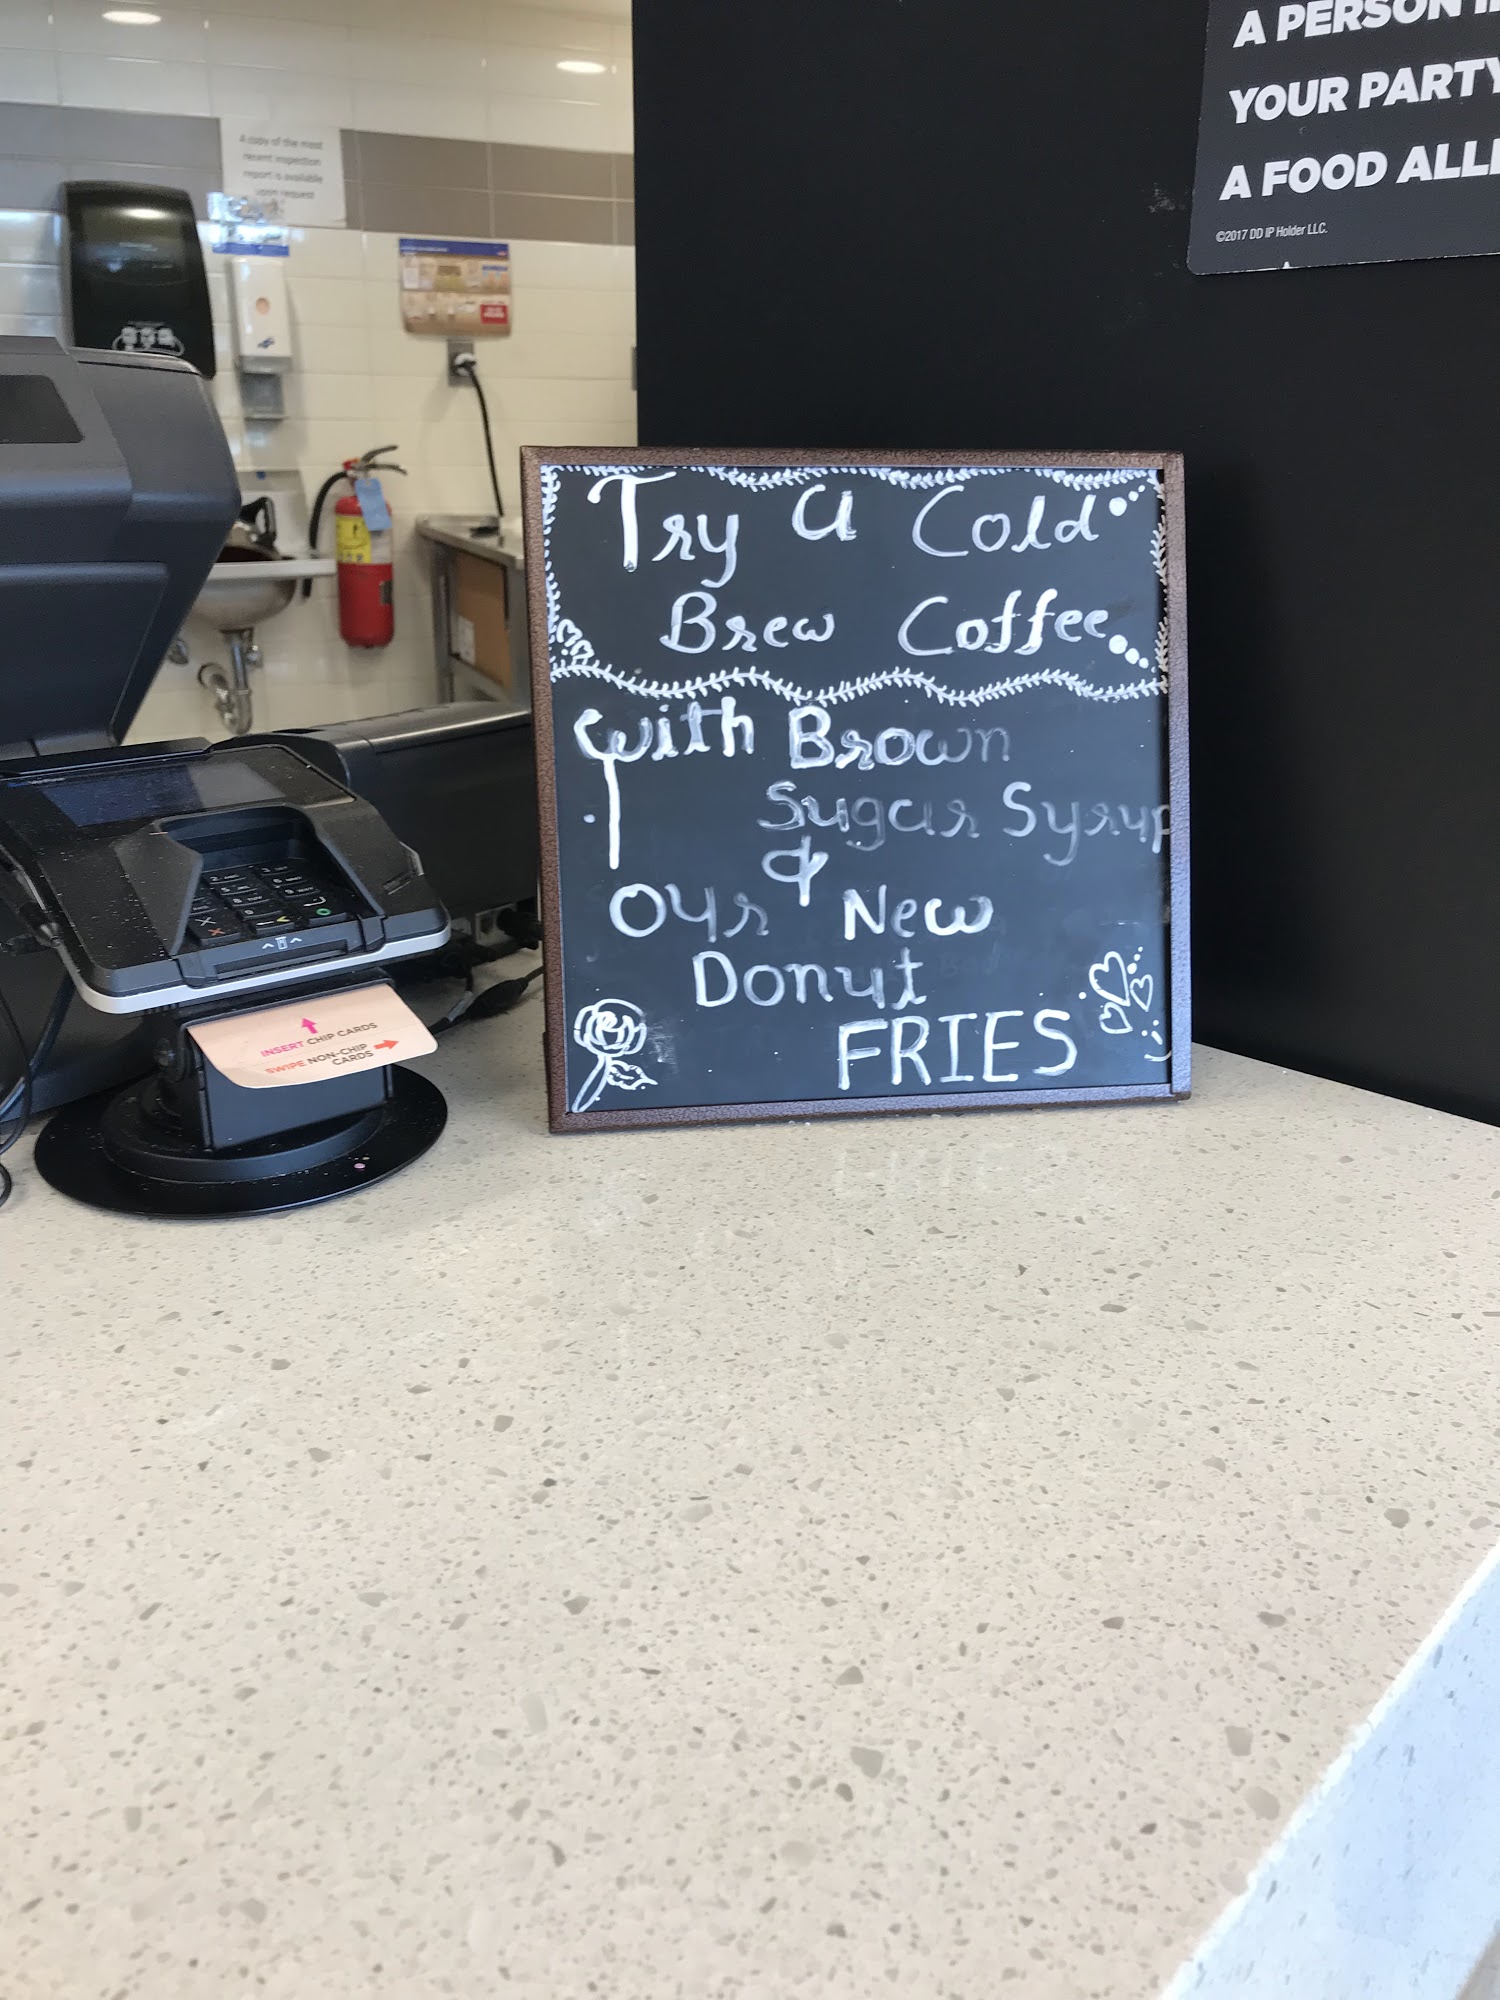 A PERSON
YOUR PARTY
A FOOD
©2017 DD IP Holder LLC.
A copy of the most
recent inspection
report is available
upon request
Try A Cold
Brew Coffee
with Brown
Sugar Syrup
&
Our New
Donut
FRIES
INSERT CHIP CARDS
SWIPE NON-CHIP
CARDS